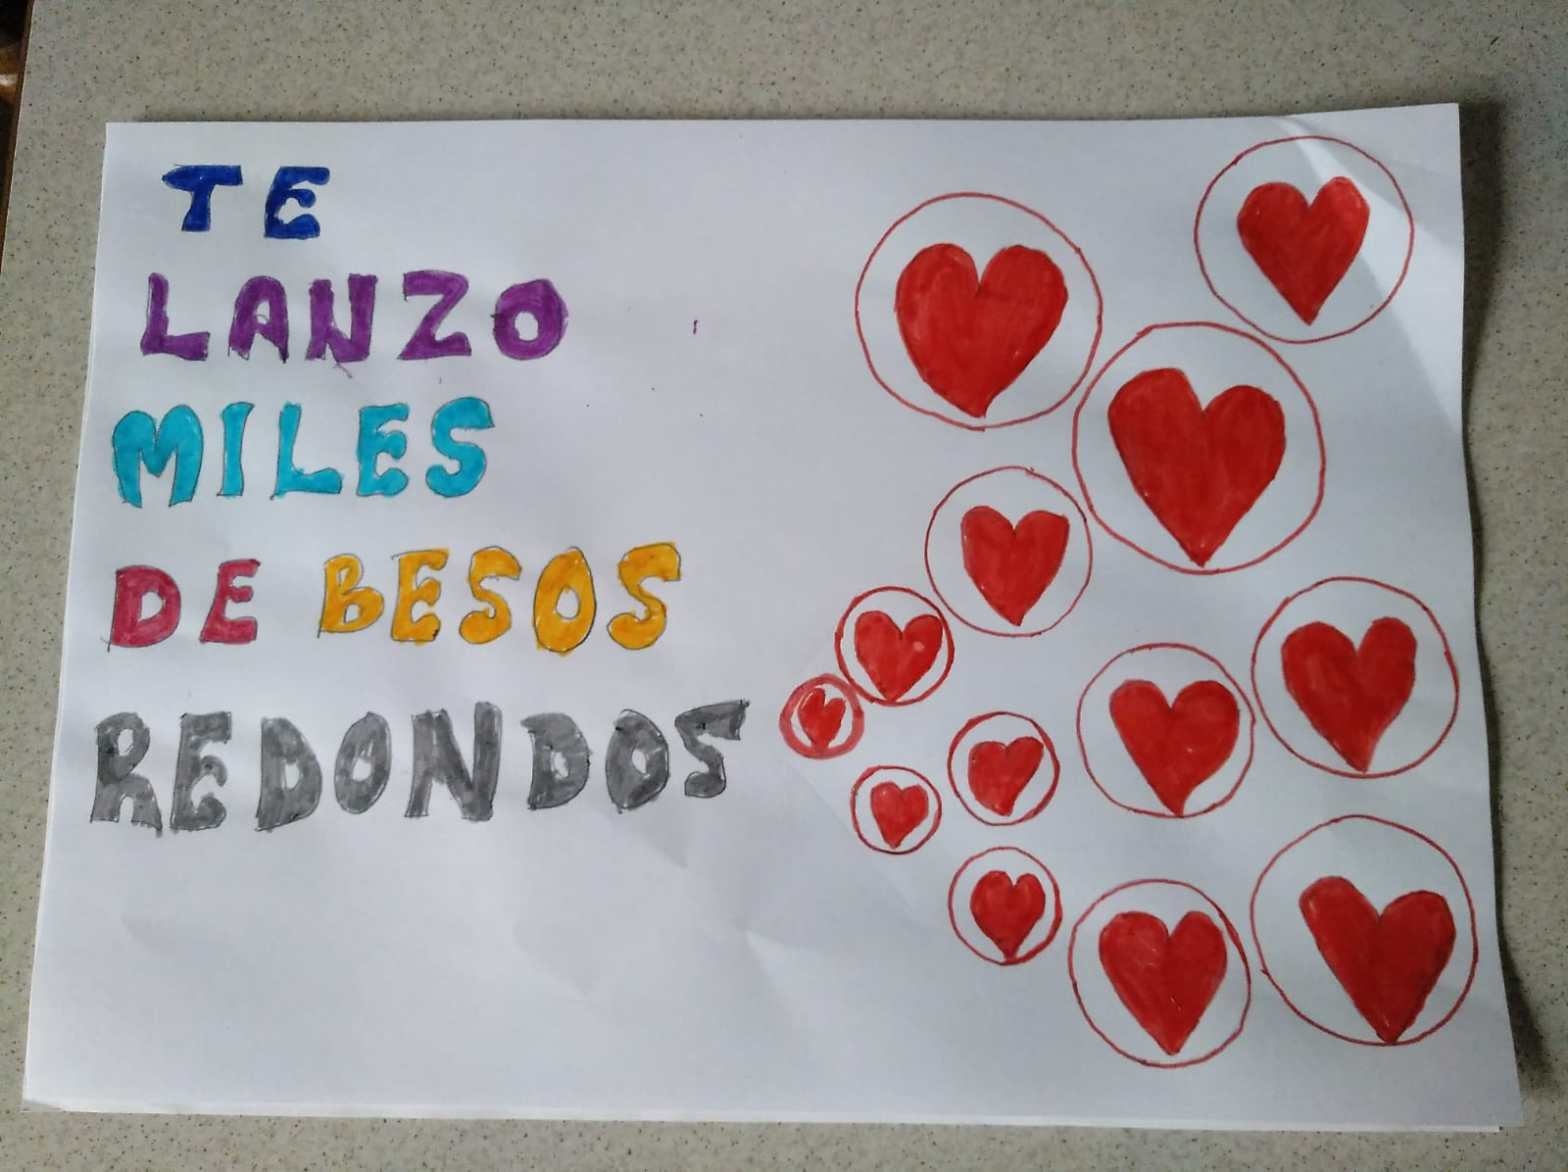 TE
LANZO
MILES
DE BESOS
REDONDOS